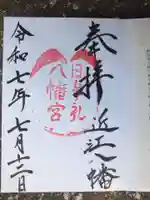 奉拝
近江八幡
日牟禮
八幡宮
令和七年七月十二日